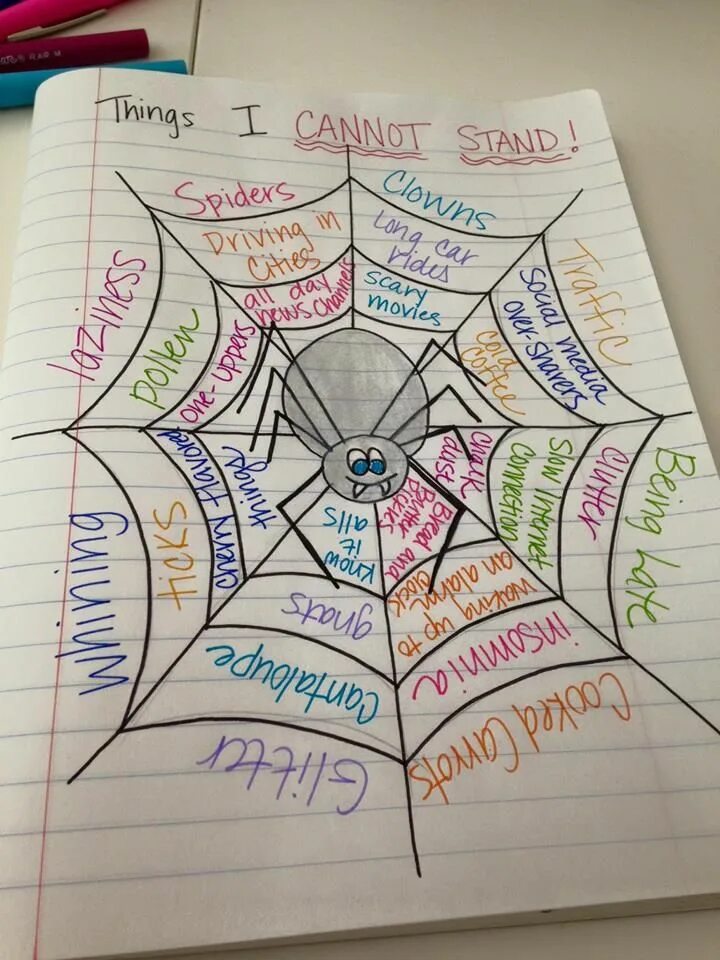 Things I CANNOT STAND!
Spiders
Driving in
Cities
all day
news channels
Clowns
Long car
rides
scary
movies
Traffic
Social media
over-sharers
Cold
Coffee
Being Late
Clutter
Slow Internet
Connection
Chalk
dust
Cooked Carrots
insomnia
waking up to
an alarm
clock
Bread and
Butter
Pickles
Glitter
Cantaloupe
gnats
know
it
alls
whining
ticks
flavored
things
laziness
pollen
one-uppers